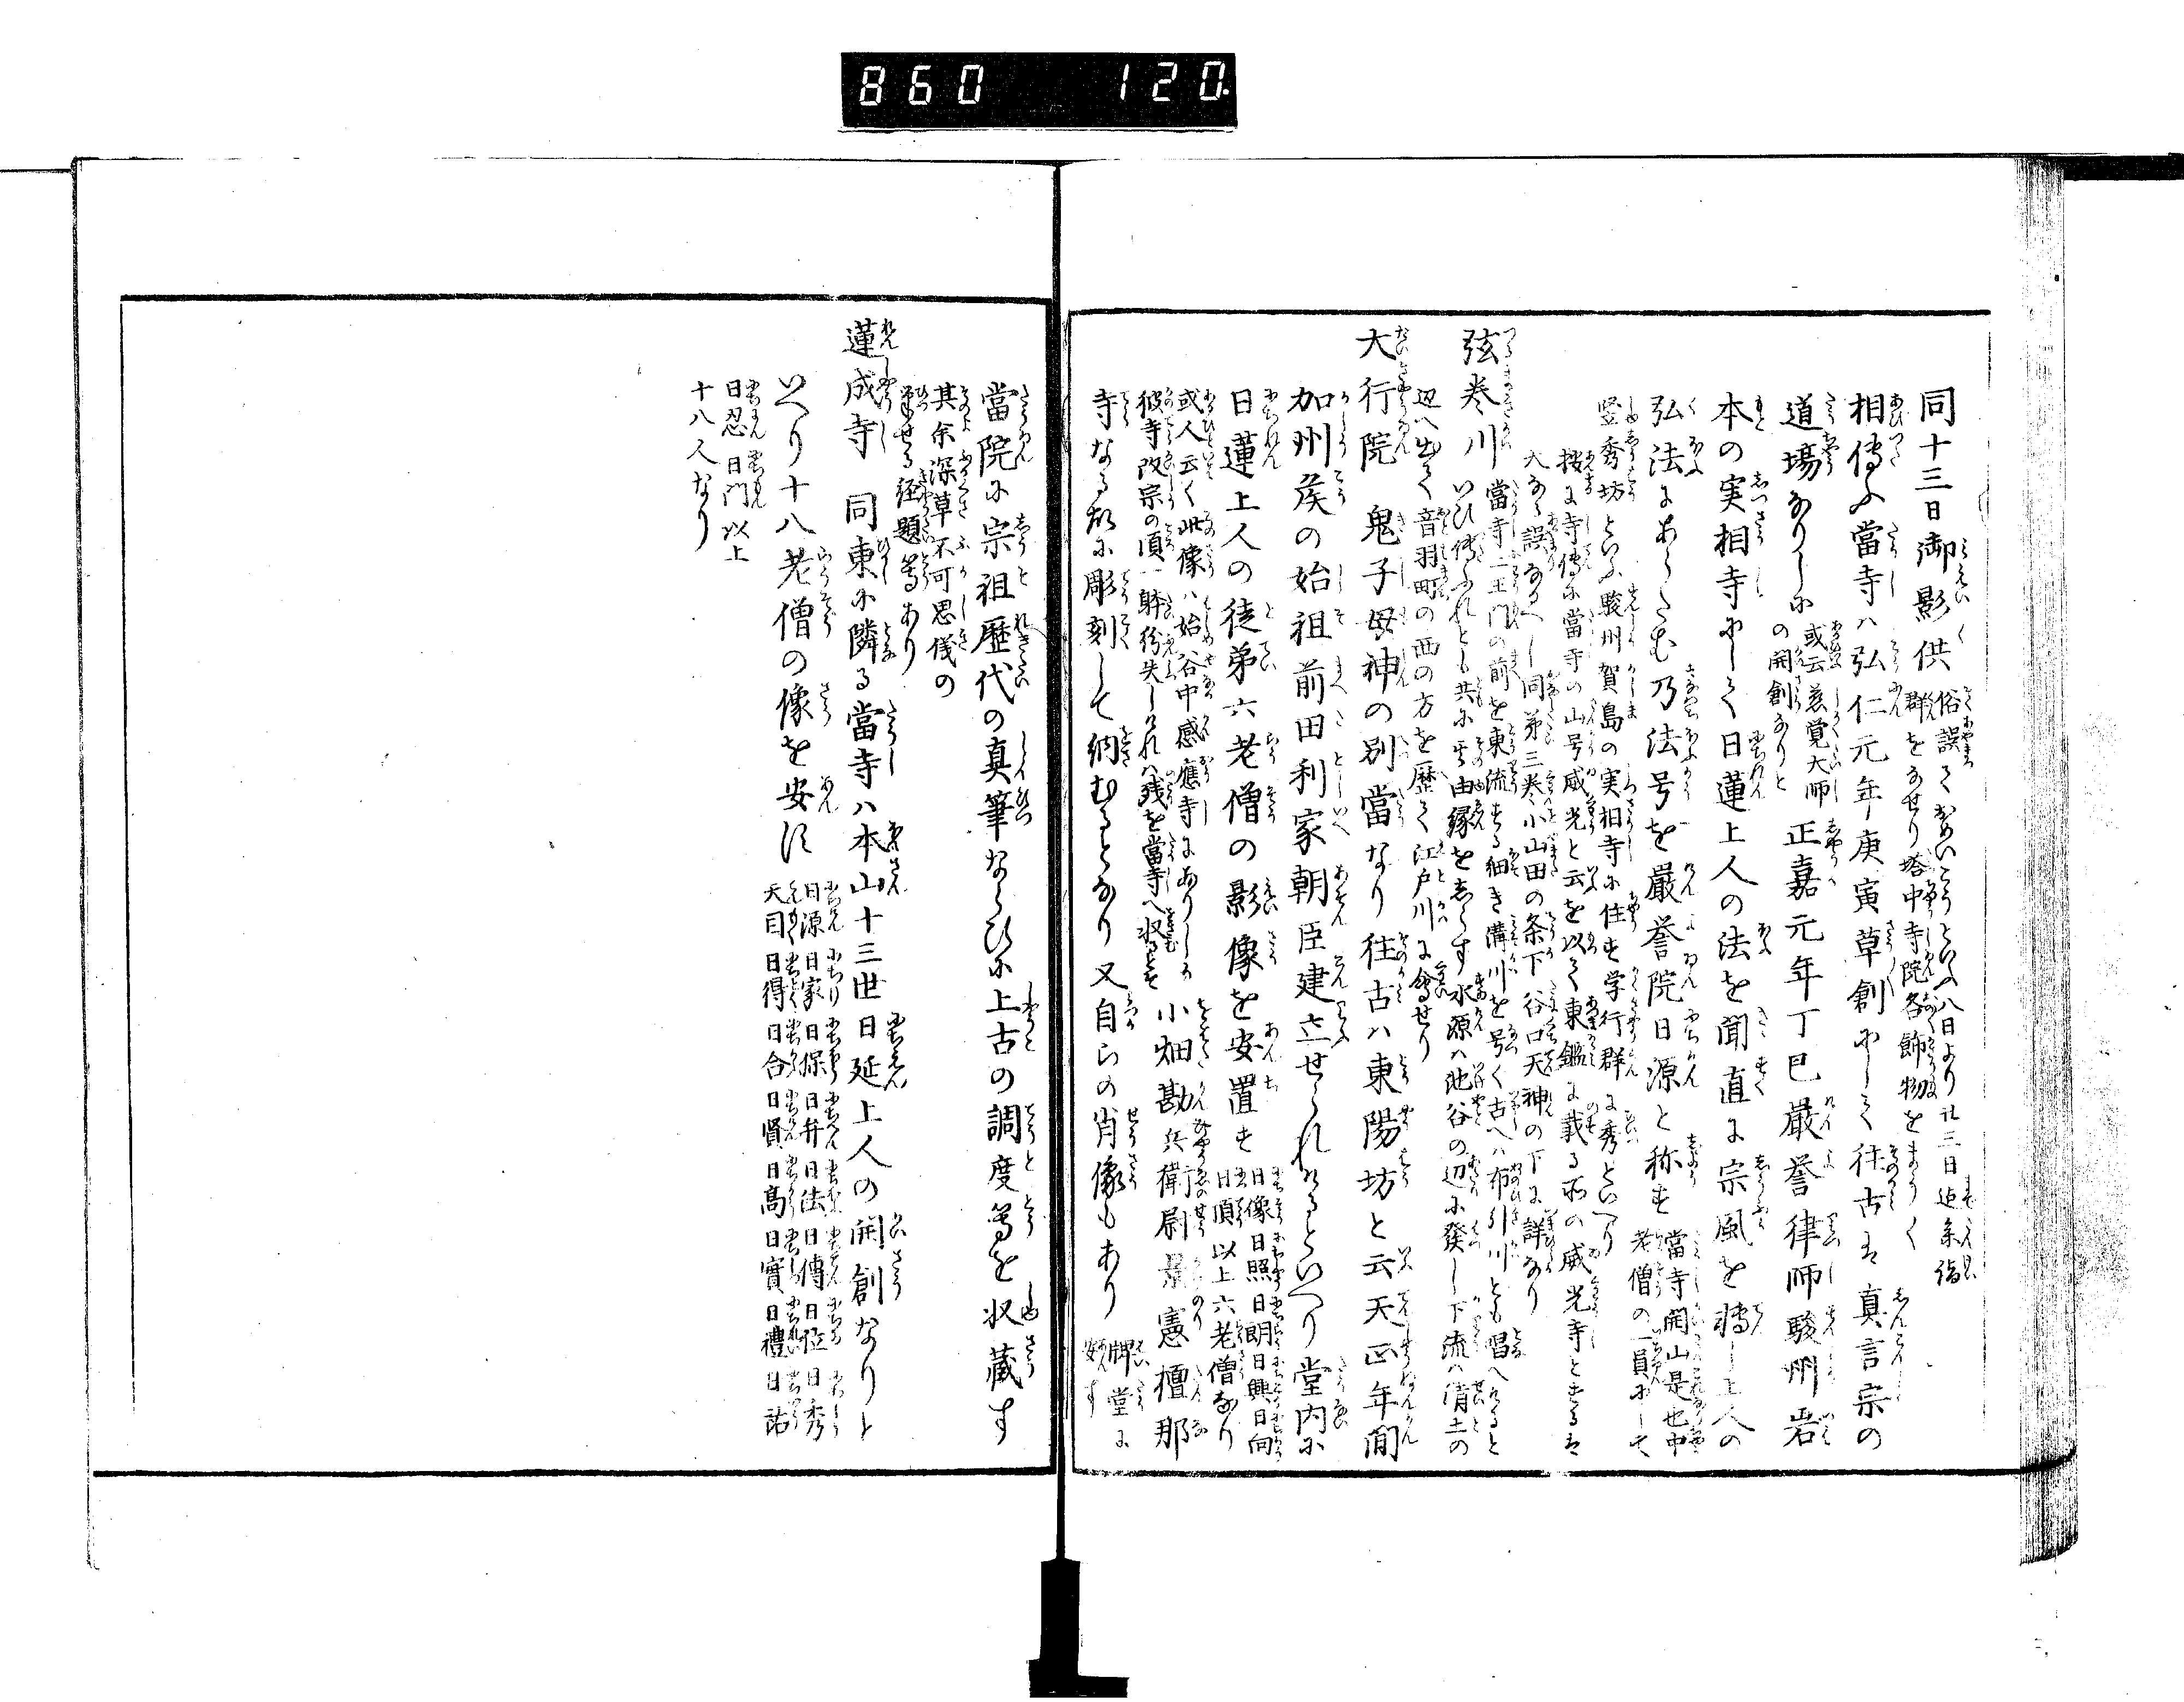 860 120.
同十三日御影供 俗誤ておめいこうといふ八日より廿三日迄参詣
群をなせり塔中寺院各飾物をまうく
相傳ふ當寺ハ弘仁元年庚寅草創にして往古は真言宗の
道場なりしに 或云慈覚大師
の開創なりと 正嘉元年丁巳厳誉律師駿州岩
本の実相寺にして日蓮上人の法を聞直に宗風を轉し上人の
弘法にあらたむ乃法号を厳誉院日源と称す 當寺開山是也中
老僧の一員にして
竪秀坊といふ駿州賀島の実相寺に住す学行群に秀といへり
按に寺傳に當寺の山号威光と云を以て東鑑に載る所の威光寺とするは
大なる誤なるへし同第三巻小山田の条下谷口天神の下に詳なり
弦巻川 當寺二王門の前を東流する細き溝川を号く古へハ布引川とも唱へけると
いひ傳ふれとも共に其由縁をしらす水源ハ池谷の辺に発し下流ハ清土の
辺へ出て音羽町の西の方を歴て江戸川に會せり
大行院 鬼子母神の別當なり往古ハ東陽坊と云天正年間
加州侯の始祖前田利家朝臣建立せられけるといへり堂内に
日蓮上人の徒弟六老僧の影像を安置す 日像日照日朗日興日向
日頂以上六老僧なり
或人云く此像ハ始谷中感應寺にありしか
彼寺改宗の頃一躰紛失しけれハ残を當寺へ収るとそ 小畑勘兵衛尉景憲檀那
寺なる故に彫刻して納むるとなり又自らの肖像もあり 牌堂に
安す
當院に宗祖歴代の真筆ならひに上古の調度等を収蔵す
其余深草不可思儀の
筆せる経題等あり
蓮成寺 同東に隣る當寺ハ本山十三世日延上人の開創なりと
いへり十八老僧の像を安す 日源日家日保日弁日法日傳日位日秀
天目日得日合日賢日高日實日禮日祐
日忍日門以上
十八人なり